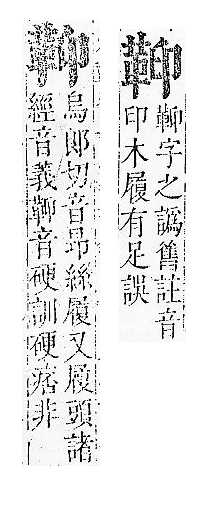 䩕字之譌舊註音
印木履有足誤
䩕
烏郎切音昂絲履又履頭諸
經音義䩕音硬訓硬非